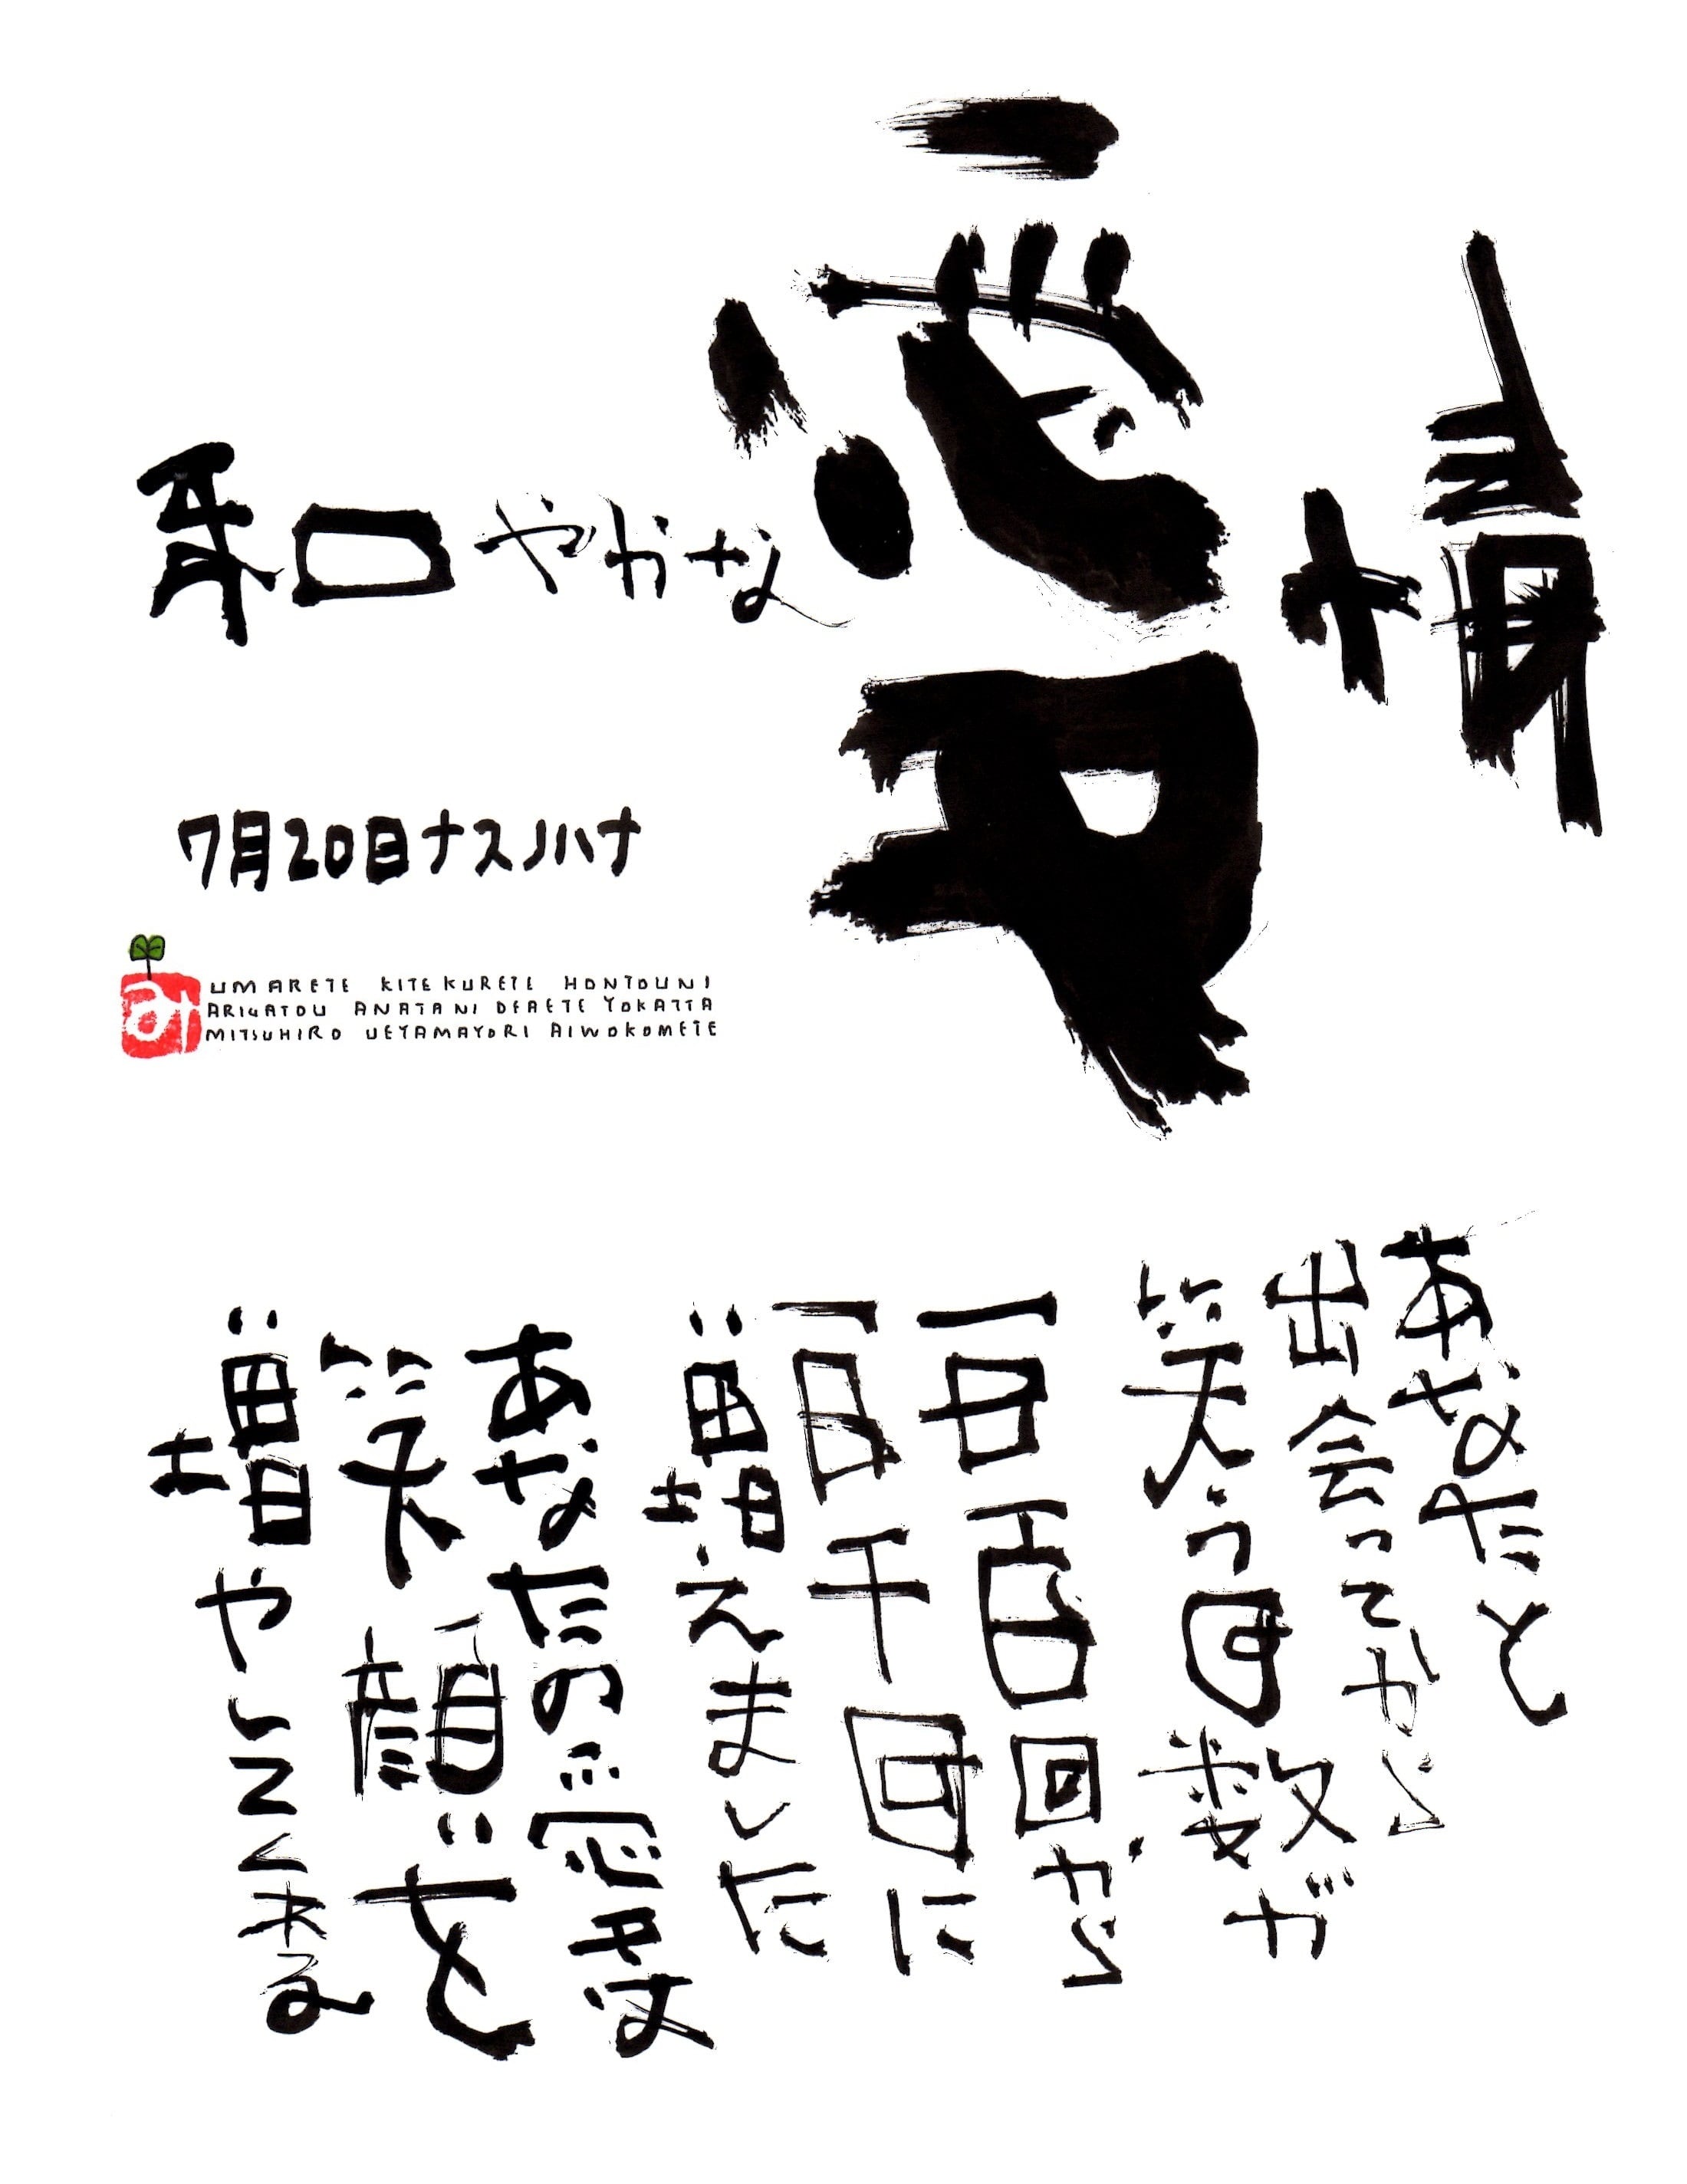 和やかな
愛情
7月20日ナスノハナ
UMARETE KITEKURETE HONTOUNI
ARIGATOU ANATANI DEAETE YOKATTA
MITSUHIRO UEYAMAYORI AIWOKOMETE
あなたと
出会ってから
笑う回数が
一日百回から
一日千回に
増えました
あなたの愛は
笑顔を
増やしてくれる